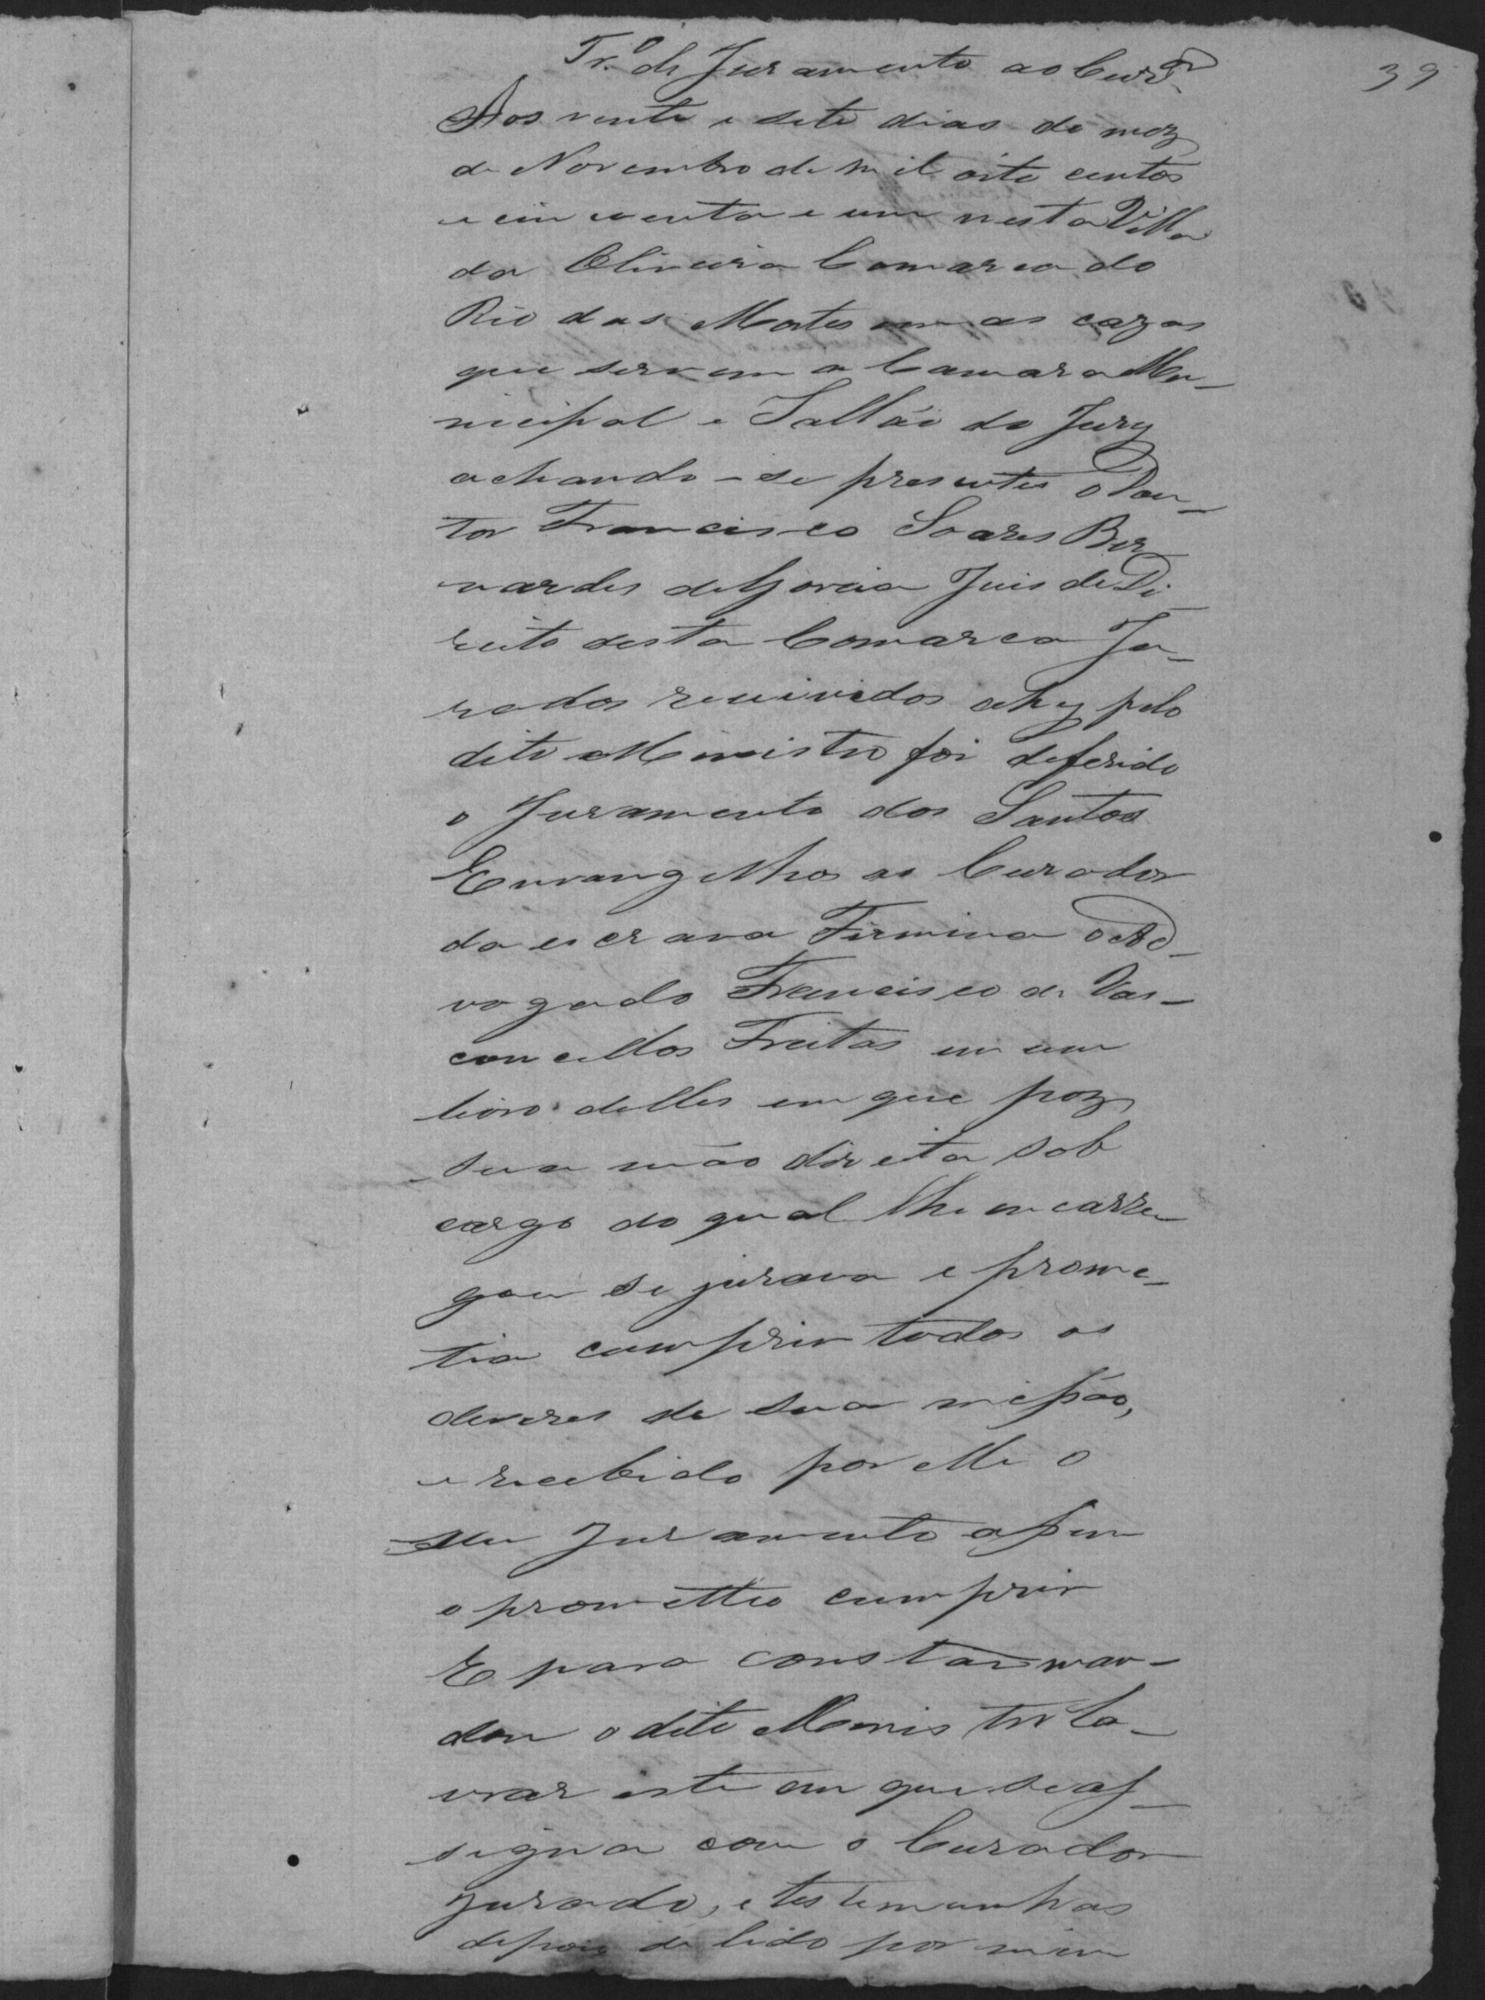 39
Tr.º de Juramento ao Curº.
Aos vente e sete dias do mez
de Novembro de mil oito centos
e cincoenta e um nesta Villa
da Oliveira Comarca do
Rio das Mortes em as cazas
que servem a Camara Mu-
nicipal e Sallão do Jury
achando-se presentes o Dou-
tor Francisco Soares Ber
nardes de Gouvia Juis de Di-
reito desta Comarca Ju-
rados reunidos ahy pelo
dito Menistro foi deferido
o Juramento dos Santos
Envangelhos ao Curador
da escrava Firmina o Ad-
vogado Francisco de Vas-
concellos Freitas em um
livro delles em que poz
sua mão direita sob
cargo do qual lhe encarre
gou se jurava e prome-
tia cumprir todos os
deveres de sua missão,
e recebido por elle o
Juramento assim
o prometteo cumprir
E para constar man-
dou o dito Menistro la-
vrar este em que se as-
signa com o Curador
jurado, e testemunhas
depois de lido por mim